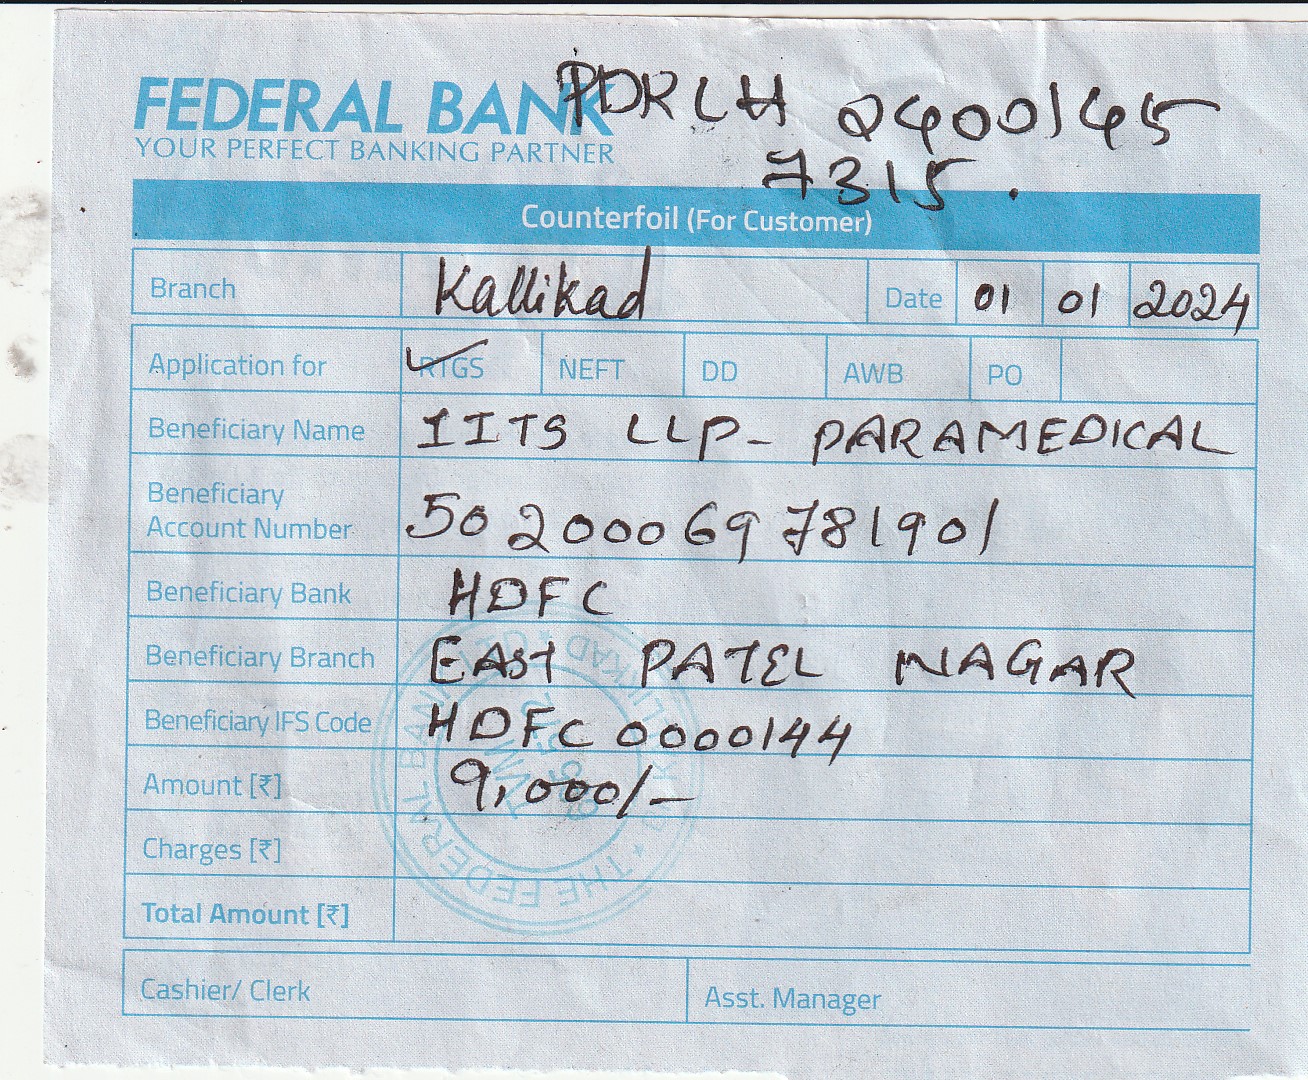 FEDERAL BANK PDRLH 2400145
YOUR PERFECT BANKING PARTNER 7315.
Counterfoil (For Customer)
Branch Kallikad Date 01 01 2024
Application for RTGS NEFT DD AWB PO
Beneficiary Name IITS LLP- PARAMEDICAL
Beneficiary
Account Number 50200069781901
Beneficiary Bank HDFC
Beneficiary Branch EAST PATEL NAGAR
Beneficiary IFS Code HDFC0000144
Amount [₹] 9,000/-
Charges [₹]
Total Amount [₹]
THE FEDERAL BANK
Cashier/ Clerk Asst. Manager